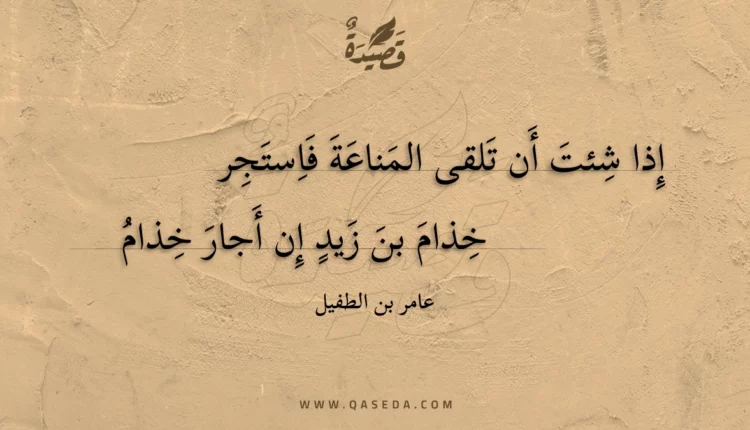 قَصِيدَةٌ
إِذا شِئتَ أَن تَلقى المَناعَةَ فَاِستَجِر
خِذامَ بنَ زَيدٍ إِن أَجارَ خِذامُ
عامر بن الطفيل
WWW.QASEDA.COM